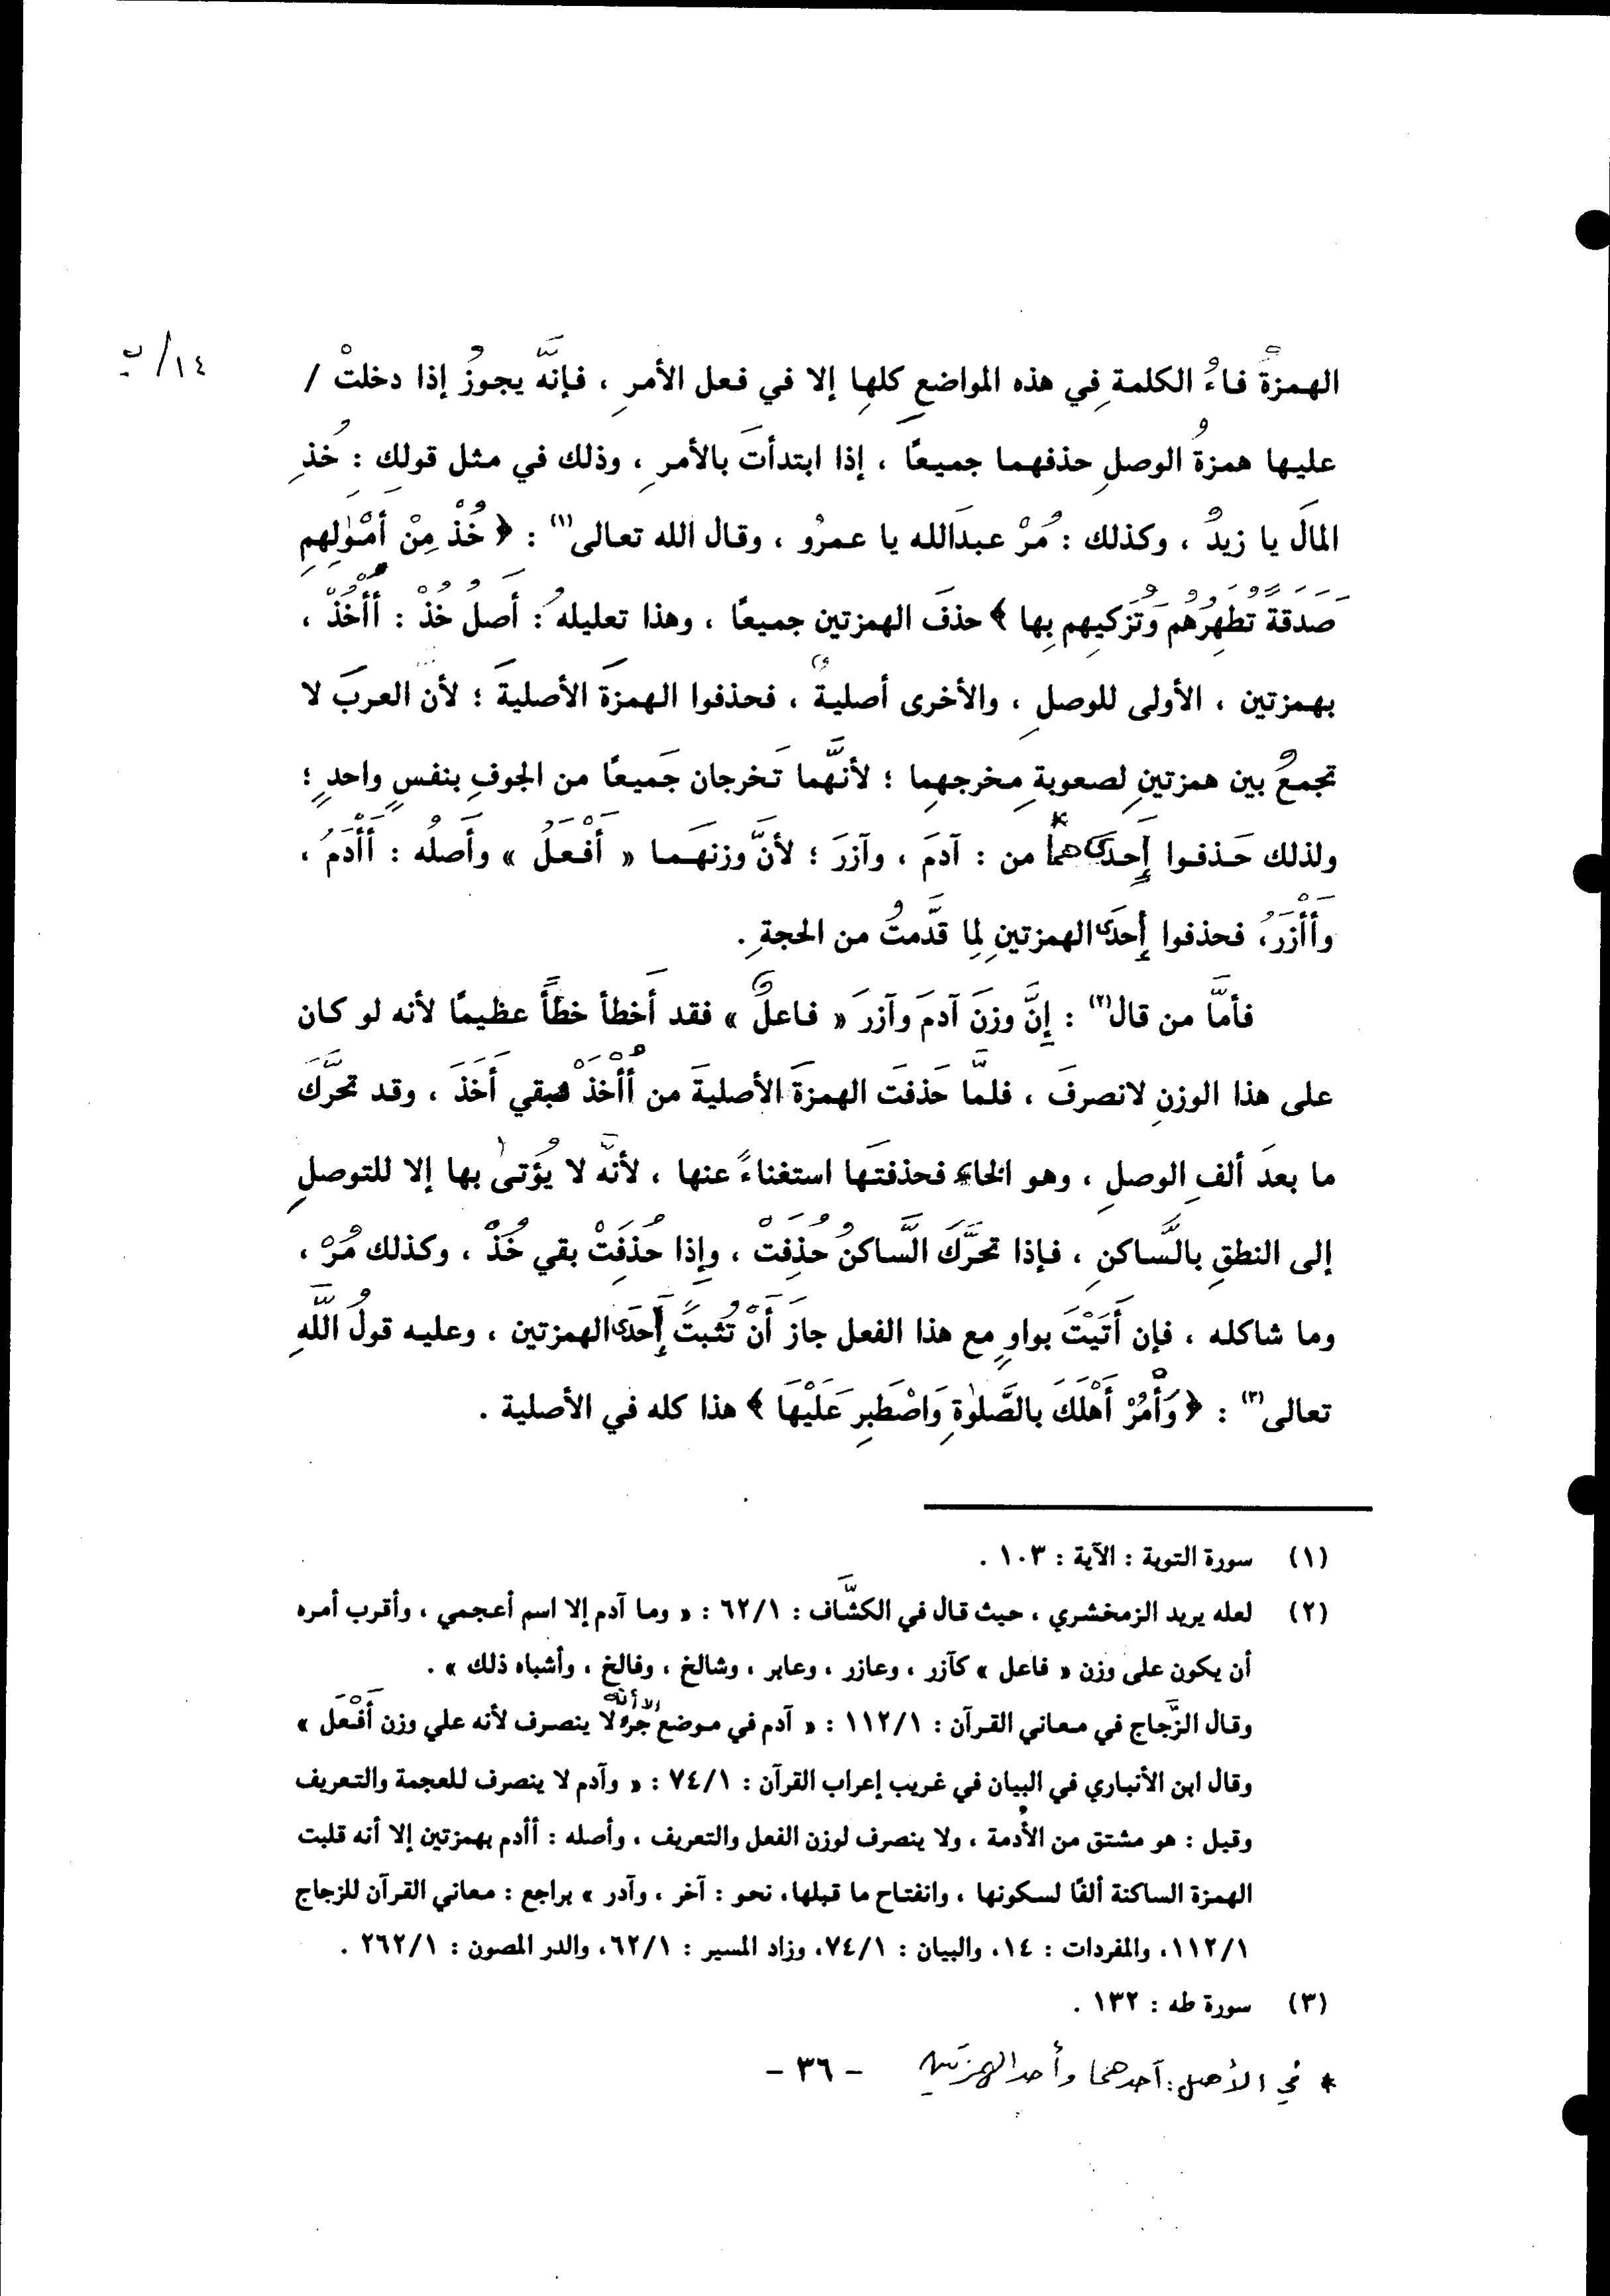 ١٤/ب
الهمزةُ فاءُ الكلمةِ في هذه المواضعِ كلِّها إلا في فعل الأمرِ ، فإنَّه يجوزُ إذا دخلتْ /
عليها همزةُ الوصلِ حذفهما جميعًا ، إذا ابتدأتَ بالأمرِ ، وذلك في مثل قولك : خُذِ
المالَ يا زيدُ ، وكذلك : مُرْ عبدَالله يا عمرُو ، وقال الله تعالى(١) : ﴿ خُذْ مِنْ أَمْوَٰلِهِم
صَدَقَةً تُطَهِّرُهُم وَتُزَكِّيهِم بِها ﴾ حذفَ الهمزتين جميعًا ، وهذا تعليلهُ : أَصلُ خُذْ : أُأْخُذْ ،
بهمزتين ، الأولى للوصلِ ، والأخرى أصليةٌ ، فحذفوا الهمزةَ الأصليةَ ؛ لأن العربَ لا
تجمعُ بين همزتينِ لصعوبةِ مخرجهِما ؛ لأنَّهما تَخرجان جَميعًا من الجوفِ بنفسٍ واحدٍ ؛
ولذلك حَذفوا إِحدَاهما* من : آدمَ ، وآزرَ ؛ لأنَّ وزنهَما « أَفْعَلُ » وأَصلُه : أَأْدَمُ ،
وأَأْزَرُ، فحذفوا إِحدَى الهمزتينِ لِما قدَّمتُ من الحجةِ .
فأمَّا من قال(٢) : إِنَّ وزنَ آدمَ وآزرَ « فاعلٌ » فقد أَخطأ خطَأً عظيمًا لأنه لو كان
على هذا الوزنِ لانصرفَ ، فلمَّا حَذفتَ الهمزةَ الأصليةَ من أُأْخُذْ فبقي أَخَذَ ، وقد تحَرَّكَ
ما بعدَ ألفِ الوصلِ ، وهو الخاء فحذفتَها استغناءً عنها ، لأنَّه لا يُؤتىٰ بها إلا للتوصلِ
إلى النطقِ بالسَّاكنِ ، فإذا تحَرَّكَ السَّاكنُ حُذِفَتْ ، وإِذا حُذِفَتْ بقي خُذْ ، وكذلك مُرْ ،
وما شاكله ، فإن أَتَيْتَ بواوٍ مع هذا الفعل جازَ أَنْ تُثبتَ إِحدَى الهمزتين ، وعليه قولُ اللَّهِ
تعالى(٣) : ﴿ وَأْمُرْ أَهْلَكَ بالصَّلَوٰةِ وَاصْطَبِر عَلَيْهَا ﴾ هذا كله في الأصلية .
(١) سورة التوبة : الآية : ١٠٣ .
(٢) لعله يريد الزمخشري ، حيث قال في الكشَّاف : ٦٢/١ : « وما آدم إلا اسم أعجمي ، وأقرب أمره
أن يكون على وزن « فاعل » كآزر ، وعازر ، وعابر ، وشالخ ، وفالخ ، وأشباه ذلك » .
وقال الزَّجاج في معاني القرآن : ١١٢/١ : « آدم في موضع جر إلا أنه لا ينصرف لأنه علي وزن أَفْعَل »
وقال ابن الأنباري في البيان في غريب إعراب القرآن : ٧٤/١ : « وآدم لا ينصرف للعجمة والتعريف
وقيل : هو مشتق من الأُدمة ، ولا ينصرف لوزن الفعل والتعريف ، وأصله : أأدم بهمزتين إلا أنه قلبت
الهمزة الساكنة ألفًا لسكونها ، وانفتاح ما قبلها، نحو : آخر ، وآدر » يراجع : معاني القرآن للزجاج
١١٢/١، والمفردات : ١٤، والبيان : ٧٤/١، وزاد المسير : ٦٢/١، والدر المصون : ٢٦٢/١ .
(٣) سورة طه : ١٣٢ .
* في الأصل : أحدهما وأحد الهمزتين
- ٣٦ -